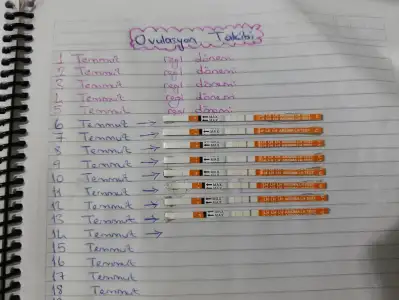 Ovulasyon Takibi
1 Temmuz regl dönemi
2 Temmuz regl dönemi
3 Temmuz regl dönemi
4 Temmuz regl dönemi
5 Temmuz regl dönemi
6 Temmuz →
7 Temmuz →
8 Temmuz →
9 Temmuz →
10 Temmuz →
11 Temmuz →
12 Temmuz →
13 Temmuz →
14 Temmuz →
15 Temmuz
16 Temmuz
17 Temmuz
18 Temmuz